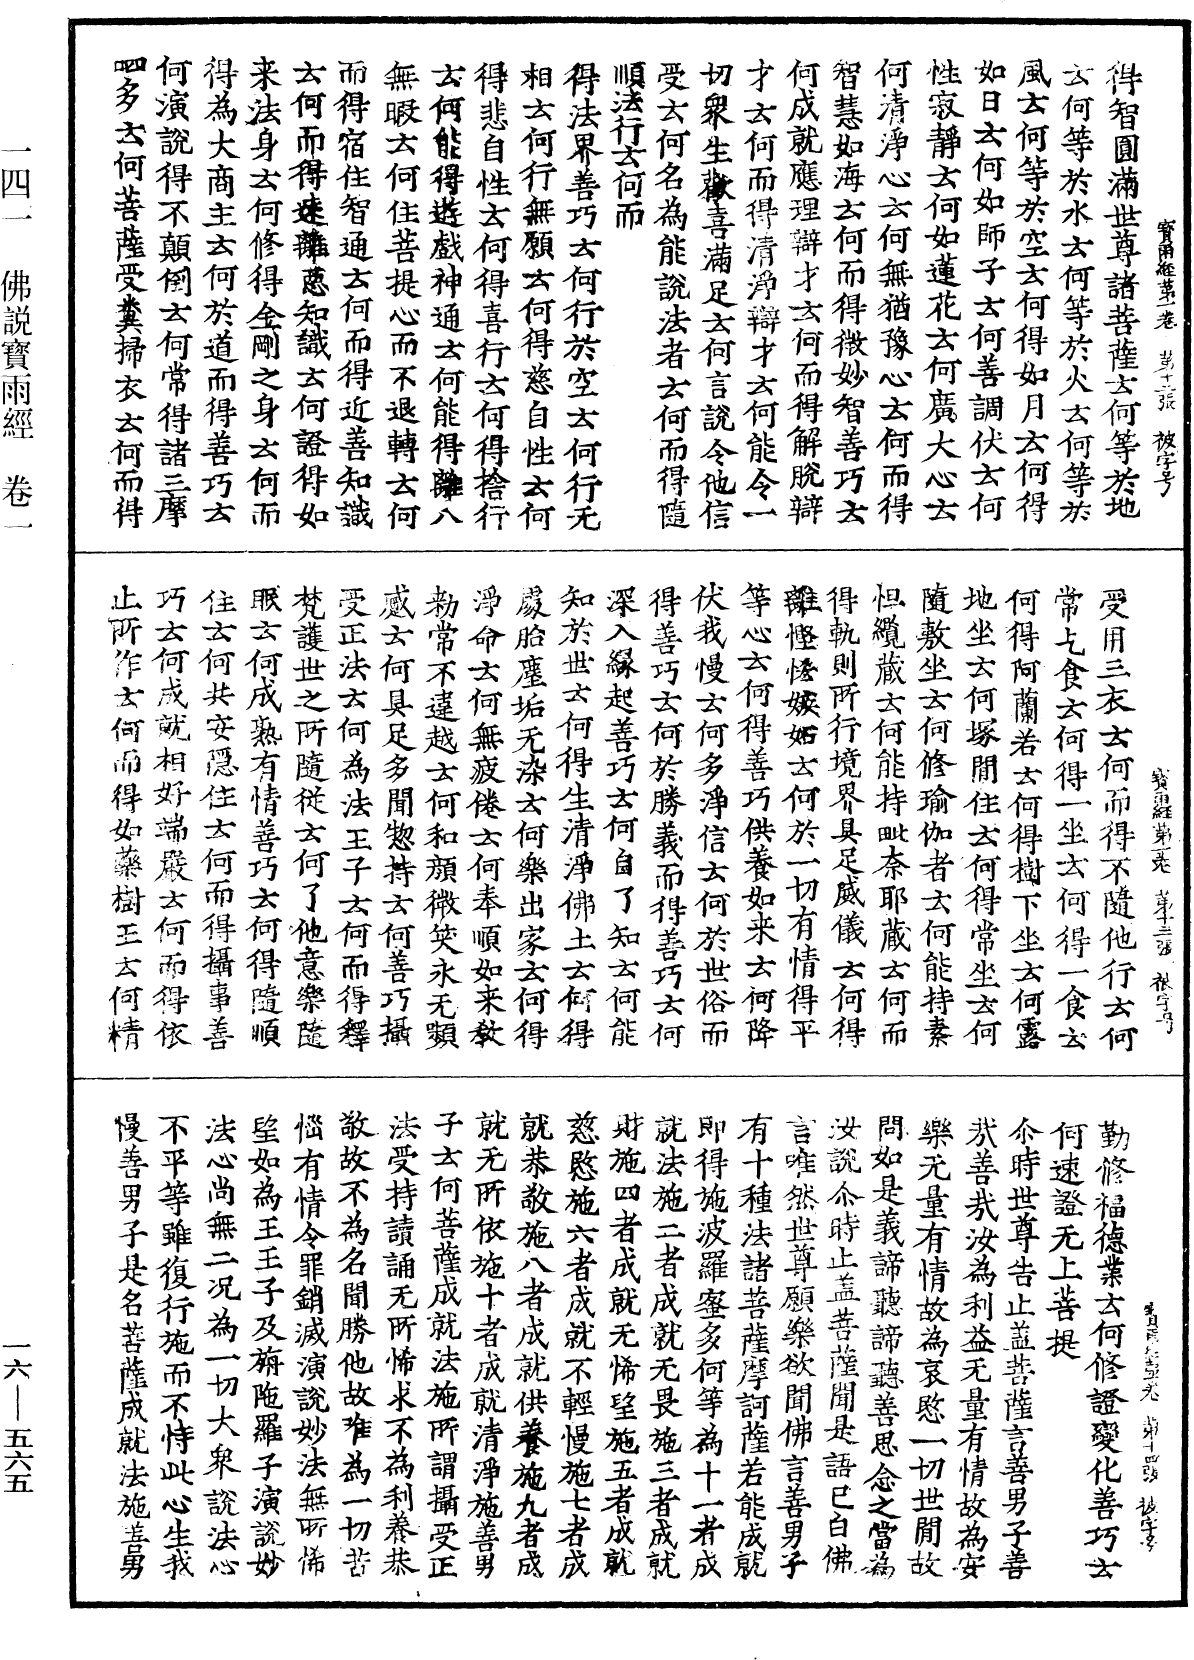 一四一 佛説寶雨經 卷一
一六—五六五
寶雨經第一卷 第十二張 被字号
得智圓滿世尊諸菩薩云何等於地
云何等於水云何等於火云何等於
風云何等於空云何得如月云何得
如日云何如師子云何善調伏云何
性寂靜云何如蓮花云何廣大心云
何清淨心云何無猶豫心云何而得
智慧如海云何而得微妙智善巧云
何成就應理辯才云何而得解脫辯
才云何而得清淨辯才云何能令一
切衆生歡喜滿足云何言說令他信
受云何名為能說法者云何而得隨
順法行云何而
得法界善巧云何行於空云何行无
相云何行無願云何得慈自性云何
得悲自性云何得喜行云何得捨行
云何能得遊戲神通云何能得離八
無暇云何住菩提心而不退轉云何
而得宿住智通云何而得近善知識
云何而得速離惡知識云何證得如
来法身云何修得金剛之身云何而
得為大商主云何於道而得善巧云
何演說得不顛倒云何常得諸三摩
呬多云何菩薩受糞掃衣云何而得
寶雨經第一卷 第十三張 被字号
受用三衣云何而得不隨他行云何
常乞食云何得一坐云何得一食云
何得阿蘭若云何得樹下坐云何露
地坐云何塚間住云何得常坐云何
隨敷坐云何修瑜伽者云何能持素
怛纜蔵云何能持毗奈耶蔵云何而
得軌則所行境界具足威儀云何得
離慳悋嫉妬云何於一切有情得平
等心云何得善巧供養如来云何降
伏我慢云何多淨信云何於世俗而
得善巧云何於勝義而得善巧云何
深入緣起善巧云何自了知云何能
知於世云何得生清淨佛土云何得
處胎塵垢无染云何樂出家云何得
淨命云何無疲倦云何奉順如来教
勑常不違越云何和顏微笑永无顰
蹙云何具足多聞惣持云何善巧攝
受正法云何為法王子云何而得釋
梵護世之所隨從云何了他意樂隨
眠云何成熟有情善巧云何得隨順
住云何共安隱住云何而得攝事善
巧云何成就相好端嚴云何而得依
止所作云何而得如藥樹王云何精
寶雨經第一卷 第十四張 被字号
勤修福德業云何修證變化善巧云
何速證无上菩提
尒時世尊告止盖菩薩言善男子善
㢤善㢤汝為利益无量有情故為安
樂无量有情故為哀愍一切世間故
問如是義諦聽諦聽善思念之當為
汝說尒時止盖菩薩聞是語已白佛
言唯然世尊願樂欲聞佛言善男子
有十種法諸菩薩摩訶薩若能成就
即得施波羅蜜多何等為十一者成
就法施二者成就无畏施三者成就
財施四者成就无悕望施五者成就
慈愍施六者成就不輕慢施七者成
就恭敬施八者成就供養施九者成
就无所依施十者成就清淨施善男
子云何菩薩成就法施所謂攝受正
法受持讀誦无所悕求不為利養恭
敬故不為名聞勝他故唯為一切苦
惱有情令罪銷滅演說妙法無所悕
望如為王王子及旃陁羅子演說妙
法心尚無二况為一切大衆說法心
不平等雖復行施而不恃此心生我
慢善男子是名菩薩成就法施善男